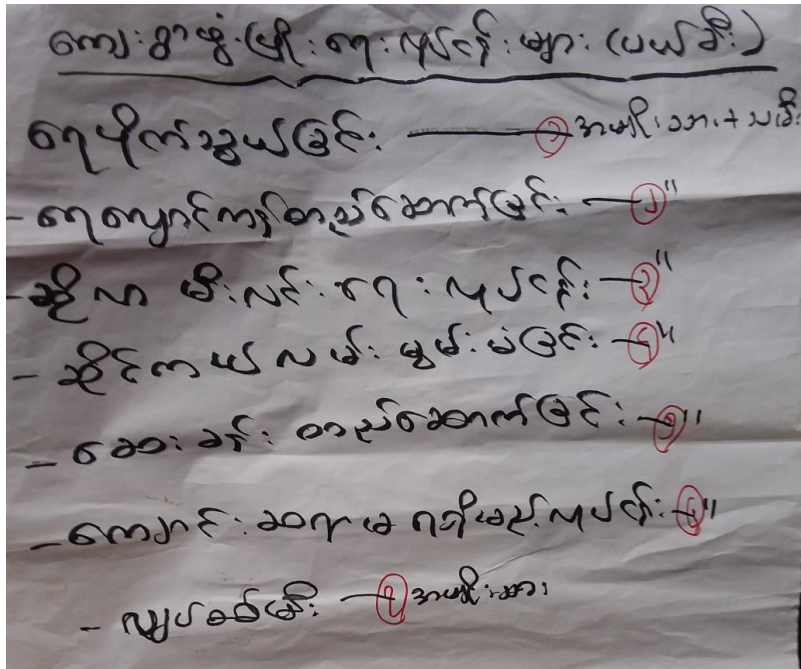 ကျေးရွာဖွံ့ဖြိုးရေးလုပ်ငန်းများ (ပယ်ခီး)
ရေပိုက်သွယ်ခြင်း — ၁ အမျိုးသား + သမီး
- ရေလှောင်ကန်တည်ဆောက်ခြင်း — ၂ "
- ဆိုလာ မီးလင်းရေးလုပ်ငန်း — ၃ "
- ဆိုင်ကယ်လမ်း မွမ်းမံခြင်း — ၄ "
- ဆေးခန်း တည်ဆောက်ခြင်း — ၅ "
- ကျောင်းဆရာမ ရရှိမည့်လုပ်ငန်း — ၆ "
- လျှပ်စစ်မီး — ၇ အမျိုးသား